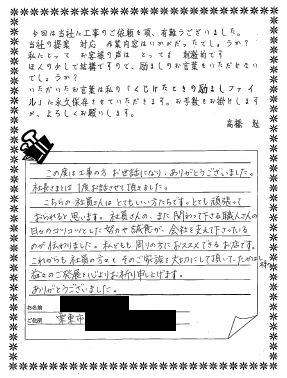 今回は当社に工事のご依頼を頂、有難うございました。
当社の提案 対応 作業内容はいかがだったでしょうか？
私にとって お客様の声は とっても 刺激的です
ほんの少しで結構ですので、励ましのお言葉をいただけないでしょうか？
いただいたお言葉は私の「くじけたときの励ましファイル」に永久保存させていただきます。お手数をお掛けしますが、よろしくお願いします。
高橋 勉
この度は工事の方 お世話になり、ありがとうございました。
社長さまとは1度お話させて頂きました。
こちらの社員さんは とてもいい方たちです。とても頑張って
おられると思います。社員さんの、また 関わって下さる職人さんの
日々のコツコツとした 努力や誠実が、会社を支えて下さっている
のが伝わりました。私どもも 周りの方に おススメできる お店です。
これからも 社員の方々と そのご家族を大切にして頂いて、たかはし様
益々のご発展を心よりお祈り申し上げます。
ありがとうございました。
お名前
ご住所 栗東市